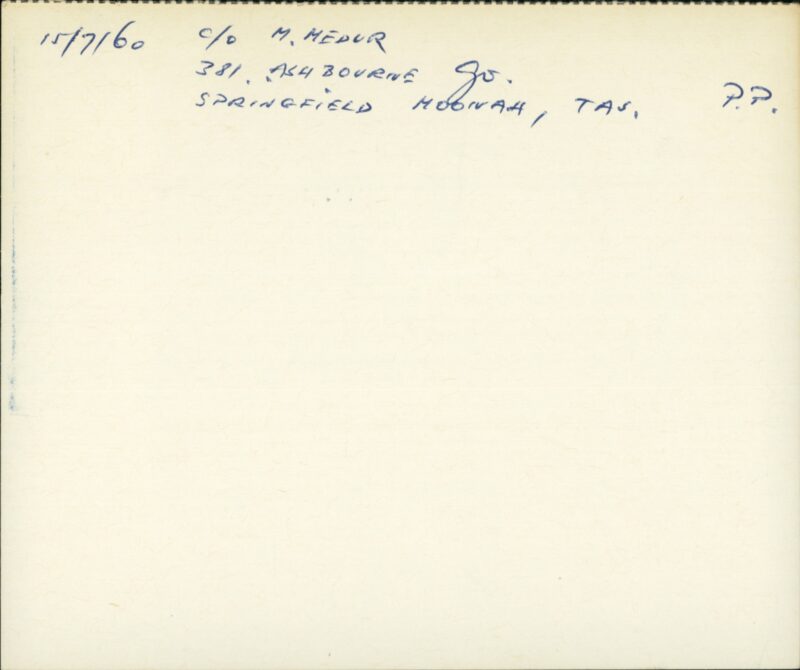 15/7/60 c/o M. MEDUR
381. ASHBOURNE
SPRINGFIELD MOONAH, TAS. P.P.